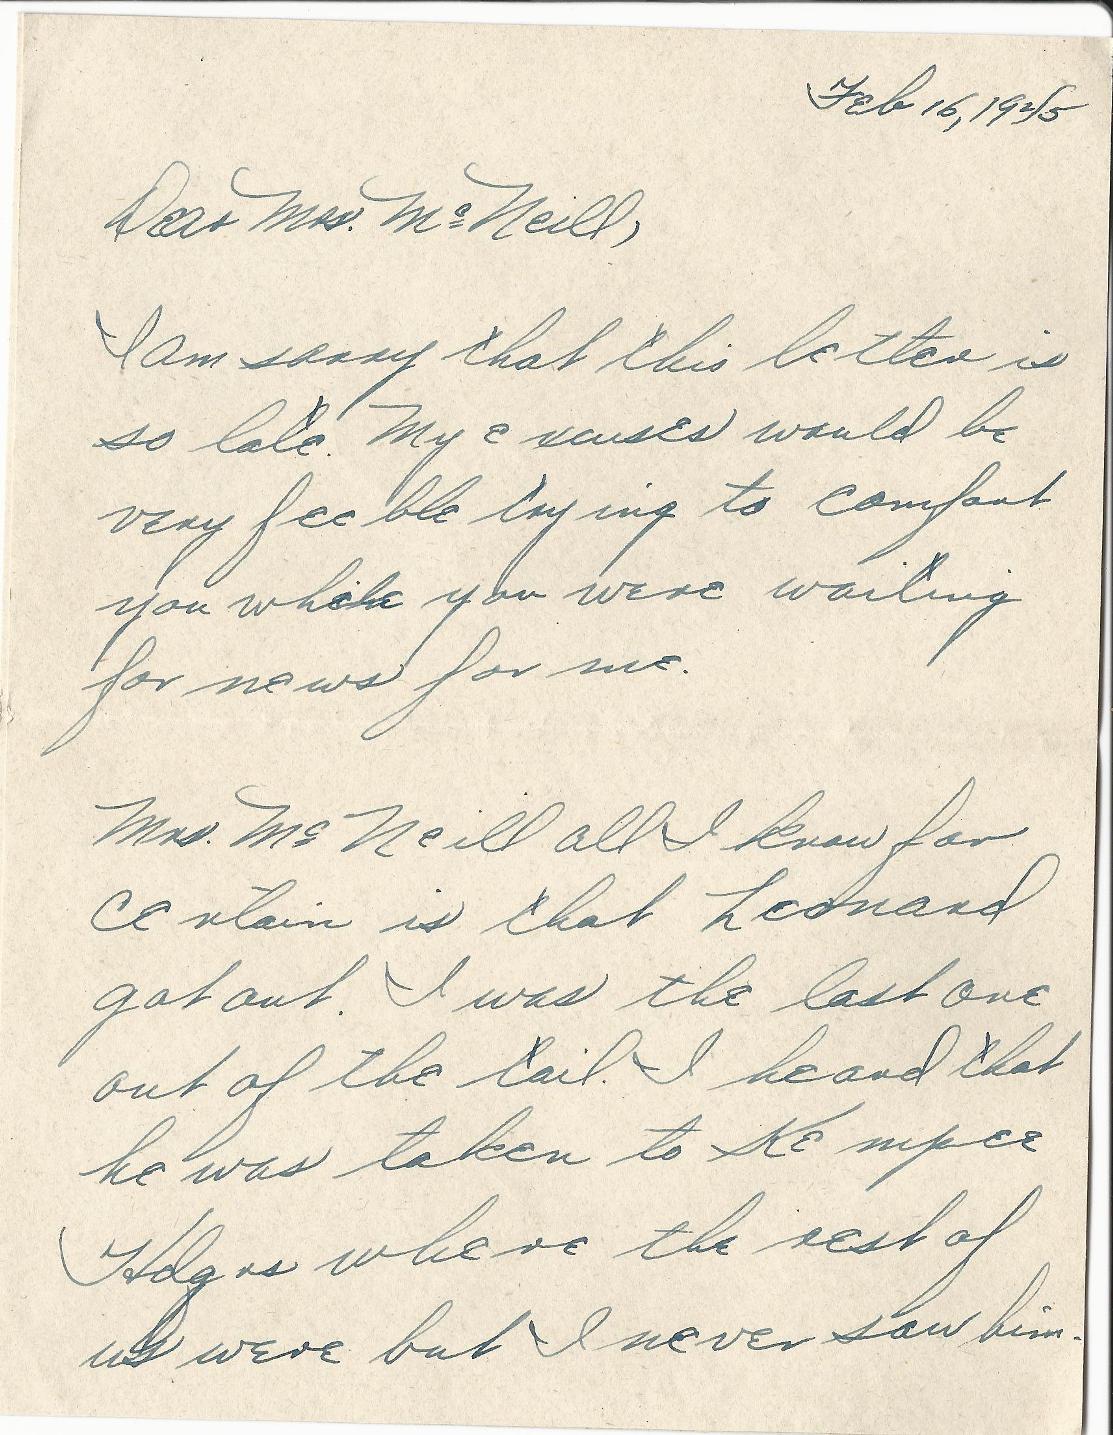 Feb 16, 1945
Dear Mrs. McNeill,
I am sorry that this letter is
so late. My excuses would be
very feeble trying to comfort
you while you were waiting
for news for me.
Mrs. McNeill all I know for
certain is that Leonard
got out. I was the last one
out of the tail. I heard that
he was taken to Kempee
Hdqrs where the rest of
us were but I never saw him.